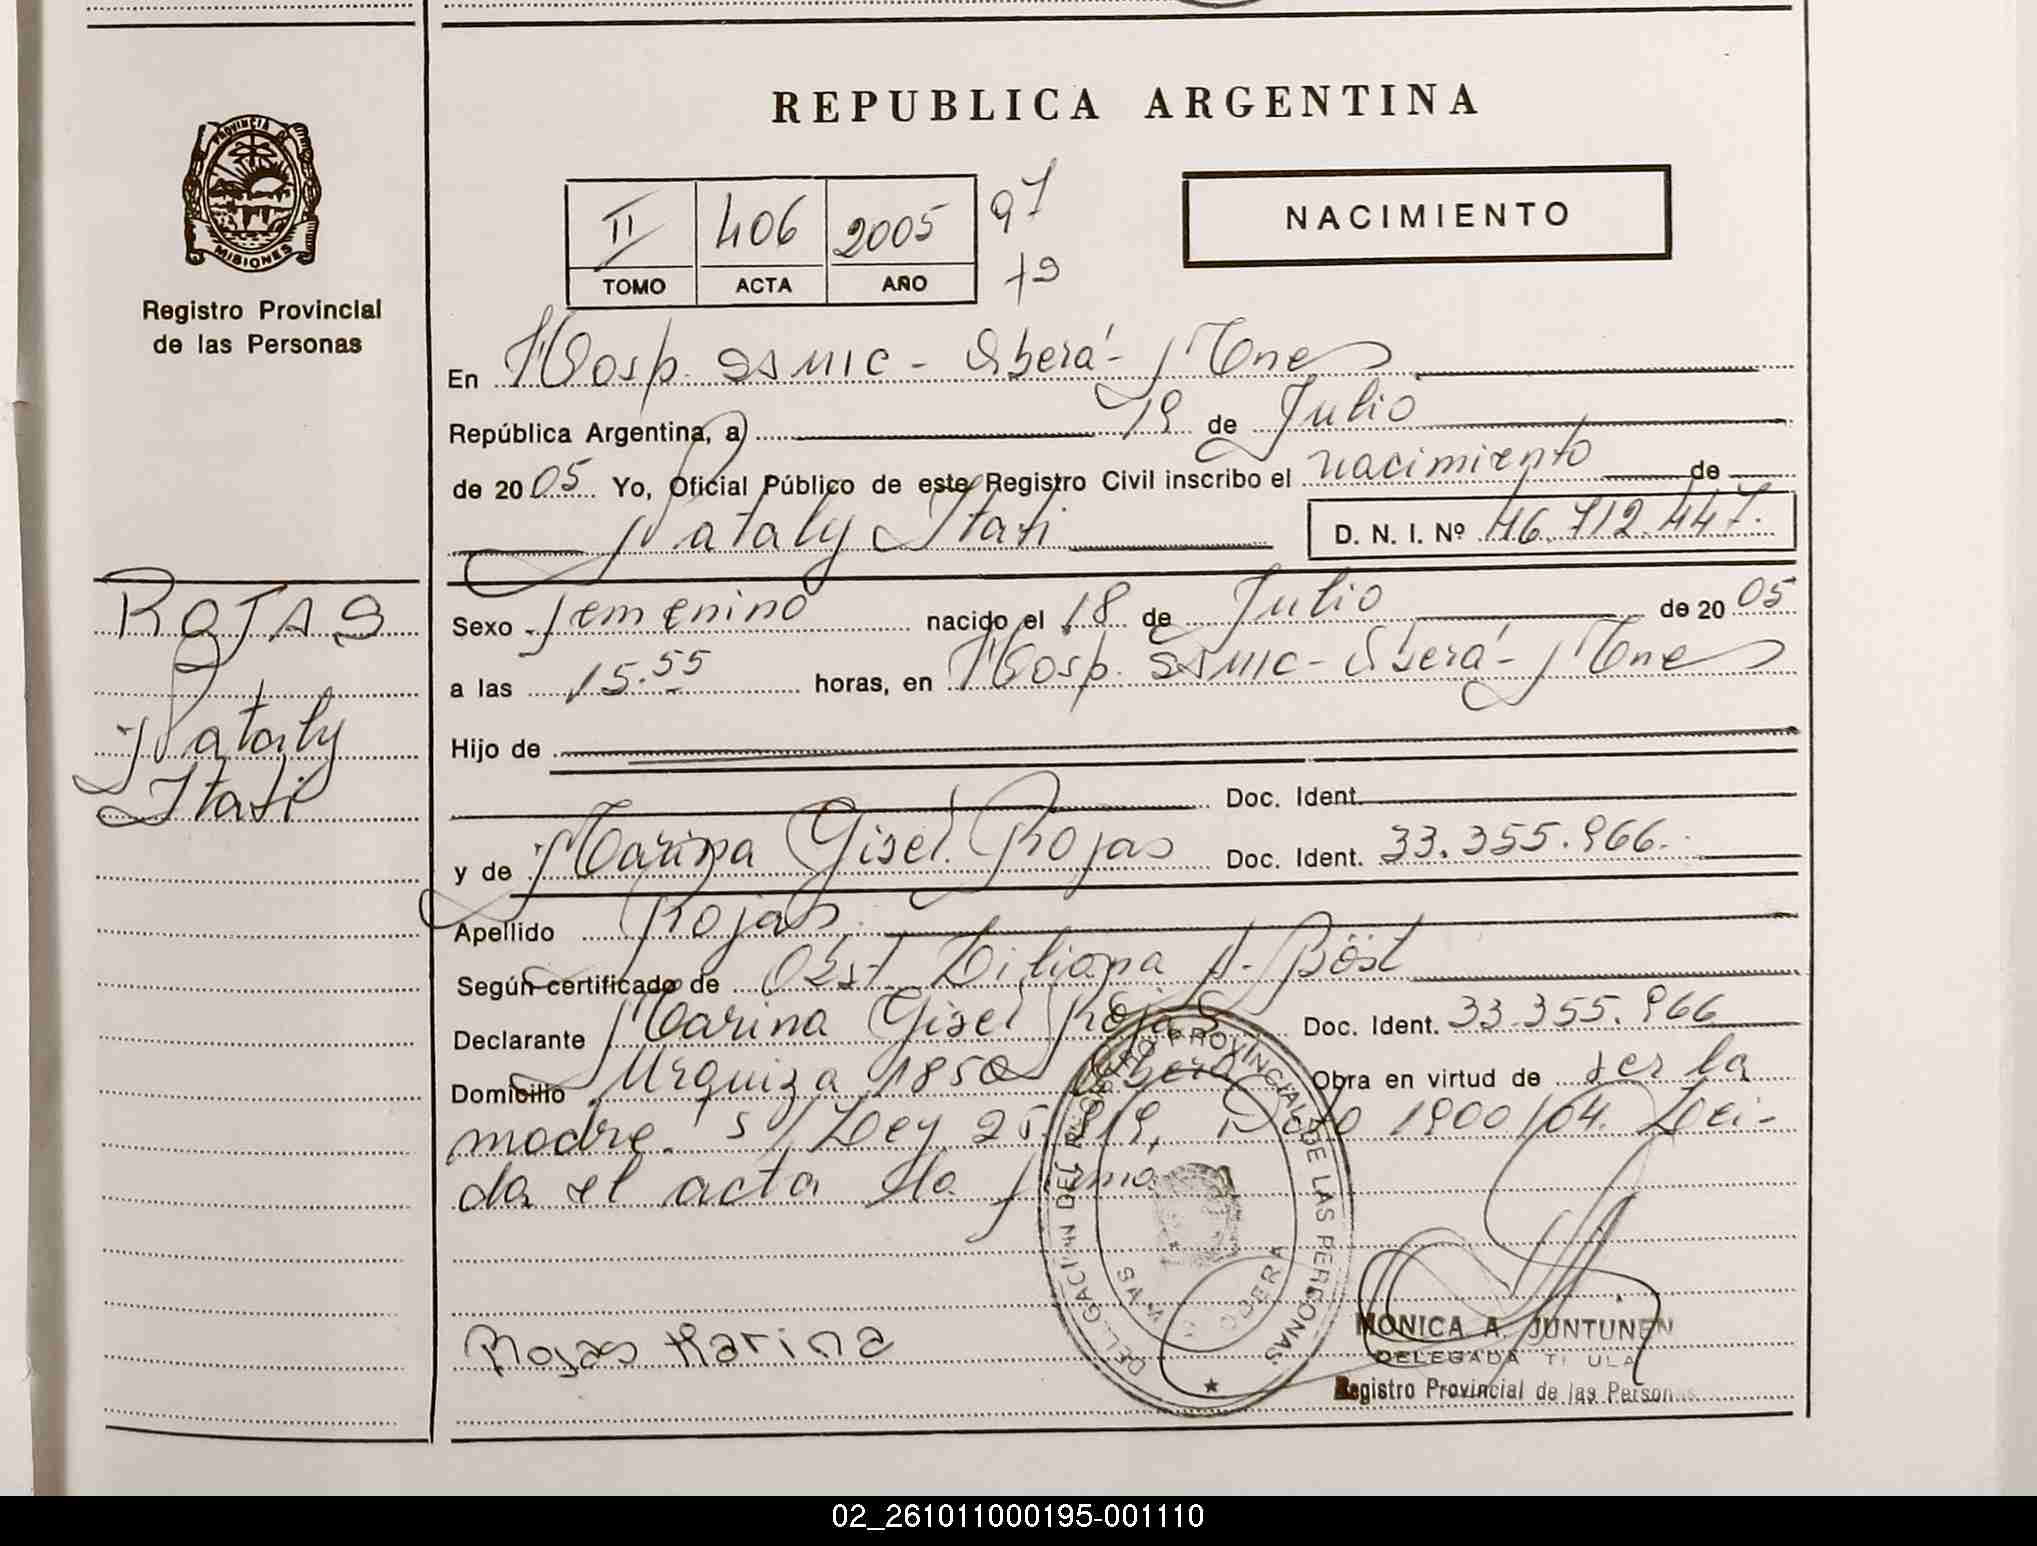 REPUBLICA ARGENTINA
PROVINCIA DE
MISIONES
Registro Provincial
de las Personas
II 406 2005 97
TOMO ACTA AÑO 79
NACIMIENTO
En Hosp. SAMIC - Oberá - Mnes
República Argentina, a 19 de Julio
de 2005 Yo, Oficial Público de este Registro Civil inscribo el nacimiento de
Nataly Itati D. N. I. Nº 46.712.447.
ROJAS
Nataly
Itati
Sexo femenino nacido el 18 de Julio de 2005
a las 15.55 horas, en Hosp. SAMIC - Oberá - Mnes
Hijo de
Doc. Ident.
y de Marina Gisel Rojas Doc. Ident. 33.355.966.
Apellido Rojas.
Según certificado de Obst Liliana A. Böst
Declarante Marina Gisel Rojas Doc. Ident. 33.355.966
Domicilio Urquiza 1850 Oberá Obra en virtud de ser la
madre. s/ Ley 25.819, Dcto 1900/04. Lei-
da el acta la firmó
Rojas Marina
DELEGACION DEL REGISTRO PROVINCIAL DE LAS PERSONAS
OBERA
MONICA A. JUNTUNEN
DELEGADA TI ULA
Registro Provincial de las Personas
02_261011000195-001110